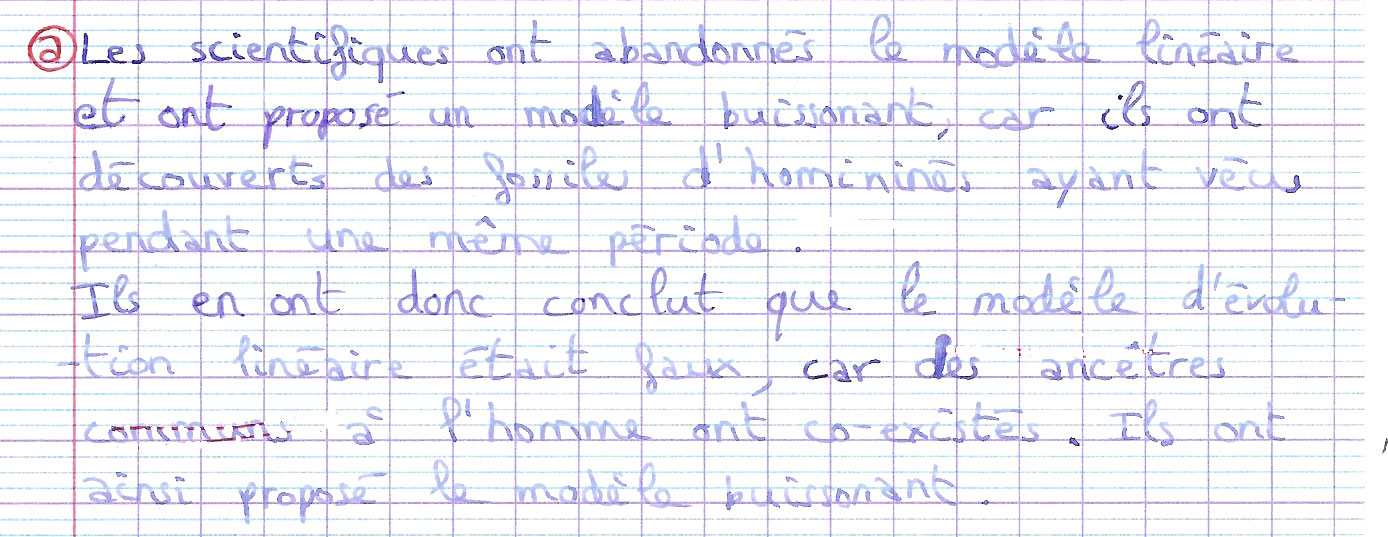 a Les scientifiques ont abandonnés le modèle linéaire
et ont proposé un modèle buissonant, car ils ont
découverts des fossiles d'homininés ayant vécus
pendant une même période.
Ils en ont donc conclut que le modèle d'évolu-
-tion linéaire était faux, car des ancêtres
communs à l'homme ont co-existés. Ils ont
ainsi proposé le modèle buissonant.